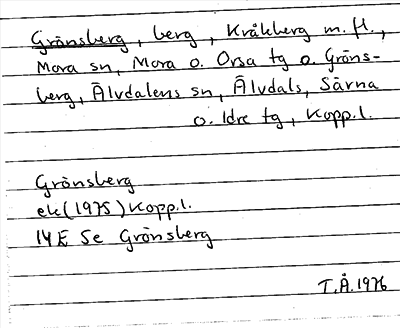 Grönsberg, berg, Kråkberg m.fl.,
Mora sn, Mora o. Orsa tg o. Gröns-
berg, Älvdalens sn, Älvdals, Särna
o. Idre tg, Kopp.l.
Grönsberg
ek (1975) Kopp.l.
14E 5e Grönsberg
T.Å. 1976